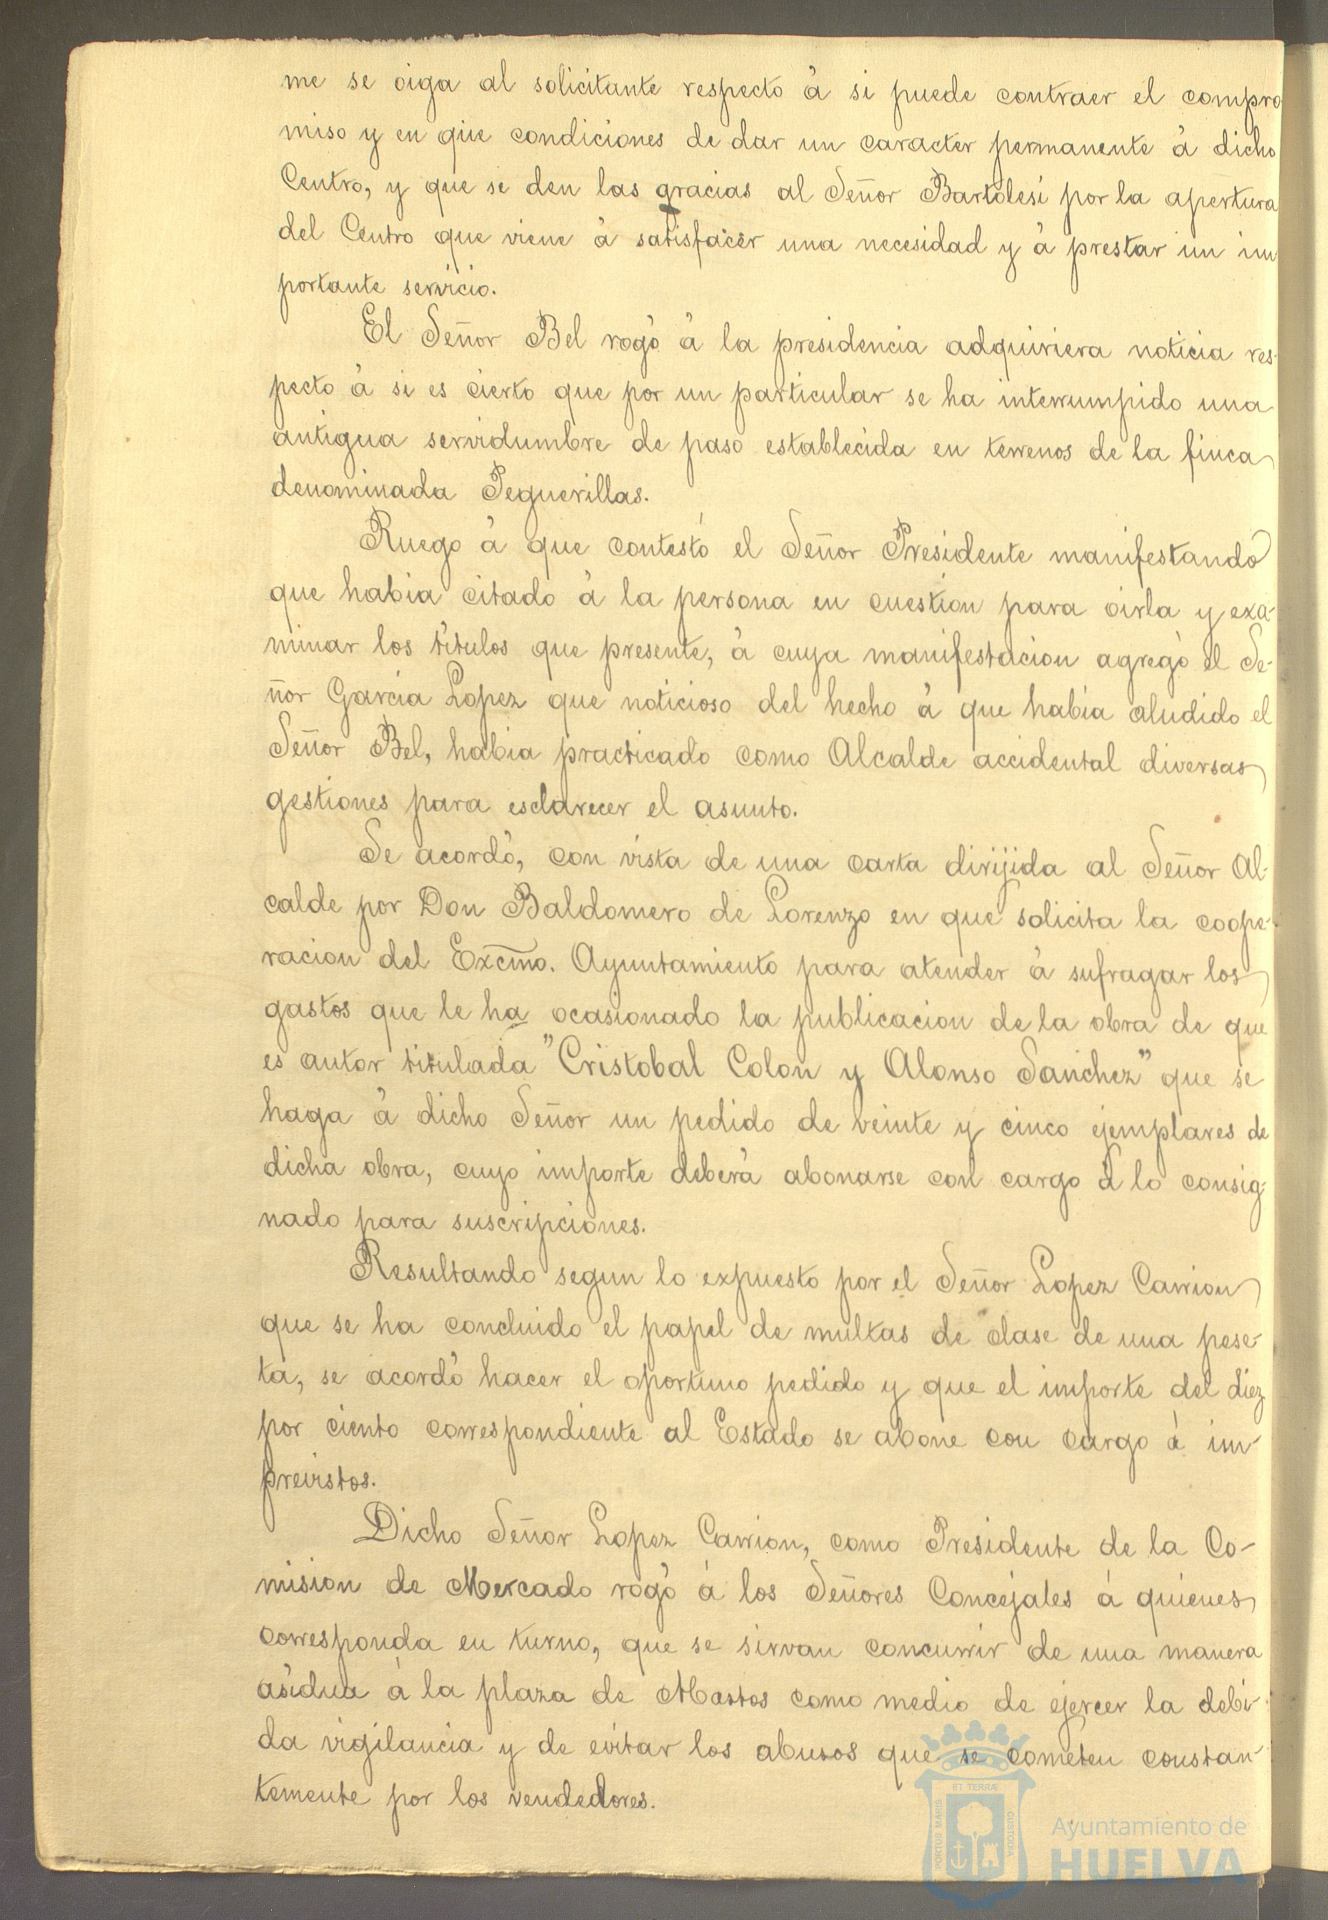 me se oiga al solicitante respecto á si puede contraer el compro
miso y en que condiciones de dar un caracter permanente á dicho
Centro, y que se den las gracias al Señor Bartolesi por la apertura
del Centro que viene á satisfacer una necesidad y á prestar un im
portante servicio.
El Señor Bel rogó á la presidencia adquiriera noticia res-
pecto á si es cierto que por un particular se ha interrumpido una
antigua servidumbre de paso establecida en terrenos de la finca
denominada Peguerillas.
Ruego á que contestó el Señor Presidente manifestando
que habia citado á la persona en cuestion para oirla y exa-
minar los titulos que presente, á cuya manifestacion agregó el Se-
ñor Garcia Lopez que noticioso del hecho á que habia aludido el
Señor Bel, habia practicado como Alcalde accidental diversas
gestiones para esclarecer el asunto.
Se acordó, con vista de una carta dirijida al Señor Al-
calde por Don Baldomero de Lorenzo en que solicita la coope-
racion del Excmo. Ayuntamiento para atender á sufragar los
gastos que le ha ocasionado la publicacion de la obra de que
es autor titulada "Cristobal Colon y Alonso Sanchez" que se
haga á dicho Señor un pedido de veinte y cinco ejemplares de
dicha obra, cuyo importe deberá abonarse con cargo á lo consig-
nado para suscripciones.
Resultando segun lo expuesto por el Señor Lopez Carrion
que se ha concluido el papel de multas de clase de una pese-
ta, se acordó hacer el oportuno pedido y que el importe del diez
por ciento correspondiente al Estado se abone con cargo á im-
previstos.
Dicho Señor Lopez Carrion, como Presidente de la Co-
mision de Mercado rogó á los Señores Concejales á quienes
corresponda en turno, que se sirvan concurrir de una manera
asidua á la plaza de Abastos como medio de ejercer la debi-
da vigilancia y de evitar los abusos que se cometen constan-
temente por los vendedores.
PORTUS MARIS
ET TERRÆ
CUSTODIA
Ayuntamiento de
HUELVA